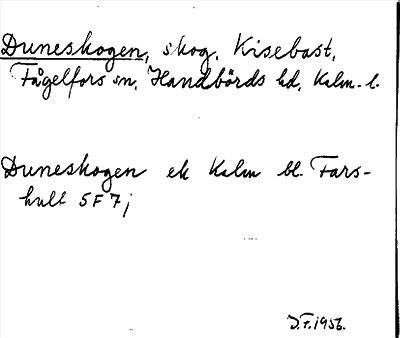 Duneskogen, skog, Kisebast,
Fågelfors sn, Handbörds hd, Kalm. l.
Duneskogen ek Kalm bl. Fars-
hult 5F7j
J.F. 1956.